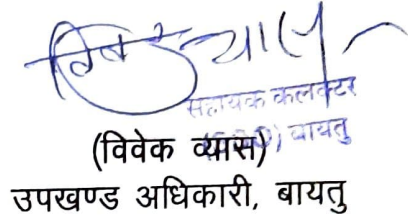 सहायक कलक्टर
(SDO) बायतु
(विवेक व्यास)
उपखण्ड अधिकारी, बायतु